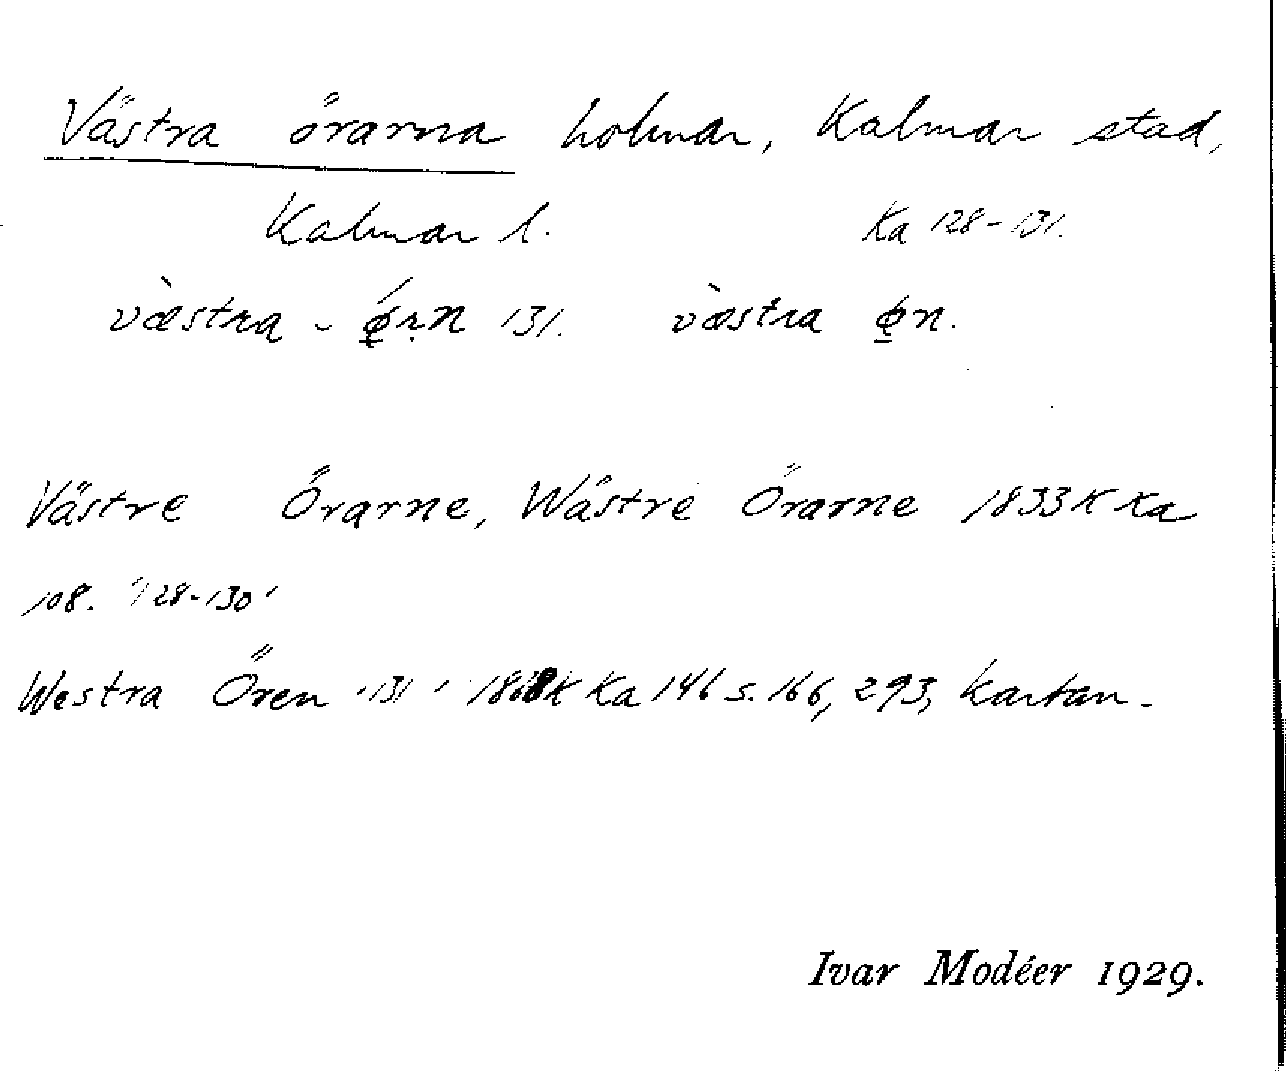 Västra örarna holmar, Kalmar stad,
Kalmar l. Ka 128-131.
væstra - ǿrn 131. væstra øn.
Västre Örarne, Wästre Örarne 1833 K Ka
108. '128-130'
Westra Ören '131' K Ka 146 s. 166, 293, kartan.
Ivar Modéer 1929.